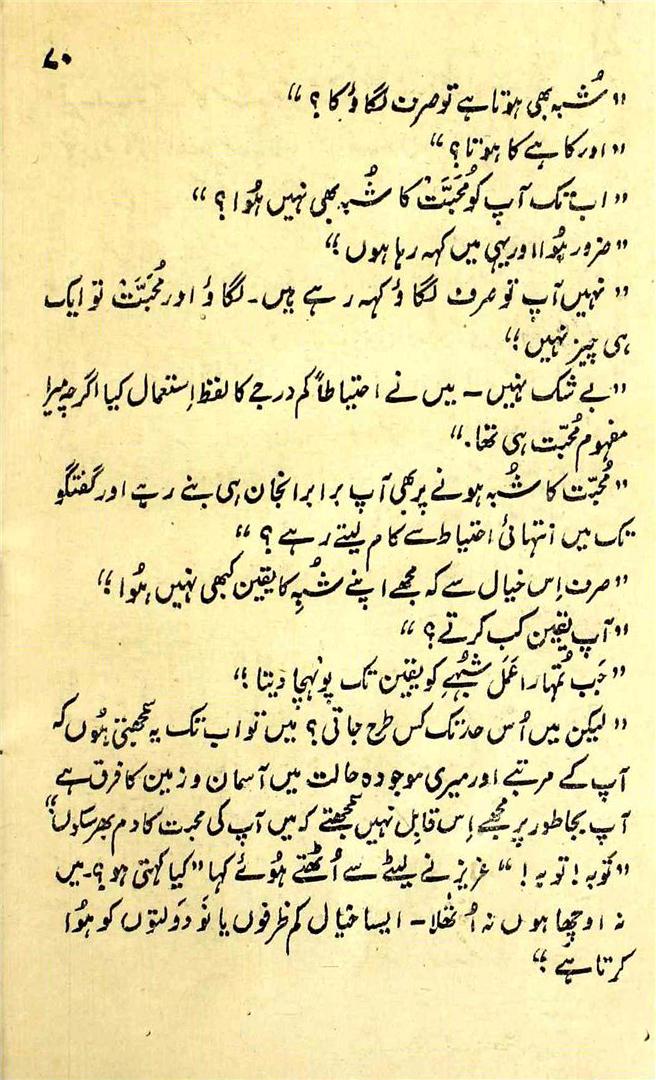 ۷۰
"شُبہ بھی ہوتا ہے تو صرف لگاؤ کا؟"
"اور کاہے کا ہوتا؟"
"اب تک آپ کو مُحبَّت کا شُبہ بھی نہیں ہُوا؟"
"ضرور ہُوا اور یہی میں کہہ رہا ہوں؛"
"نہیں آپ تو صرف لگاؤ کہہ رہے ہیں۔ لگاؤ اور مُحبَّت تو ایک
ہی چیز نہیں؛"
"بے شک نہیں – میں نے احتیاطاً کم درجے کا لفظ اِستعمال کیا اگرچہ میرا
مفہوم مُحبّت ہی تھا."
"مُحبّت کا شُبہ ہونے پر بھی آپ برابر انجان ہی بنے رہے اور گفتگو
تک میں انتہائی احتیاط سے کام لیتے رہے؟"
"صرف اِس خیال سے کہ مجھے اپنے شُبہ کا یقین کبھی نہیں ہُوا؛"
"آپ یقین کب کرتے؟"
"جب تُمہارا عَمَل شُبہے کو یقین تک پونہچا دیتا؛"
"لیکن میں اُس حد تک کس طرح جاتی؟ میں تو اب تک یہ سمجھتی ہُوں کہ
آپ کے مرتبے اور میری موجودہ حالت میں آسمان و زمین کا فرق ہے
آپ بجا طور پر مجھے اِس قابل نہیں سمجھتے کہ میں آپ کی محبت کا دم بھر سکوں؛"
"توبہ! توبہ!" عزیز نے لیٹے سے اُٹھتے ہُوئے کہا "کیا کہتی ہو؟۔ میں
نہ اوچھا ہوں نہ اُتھلا – ایسا خیال کم ظرفوں یا نَو دَولتوں کو ہُوا
کرتا ہے؛"